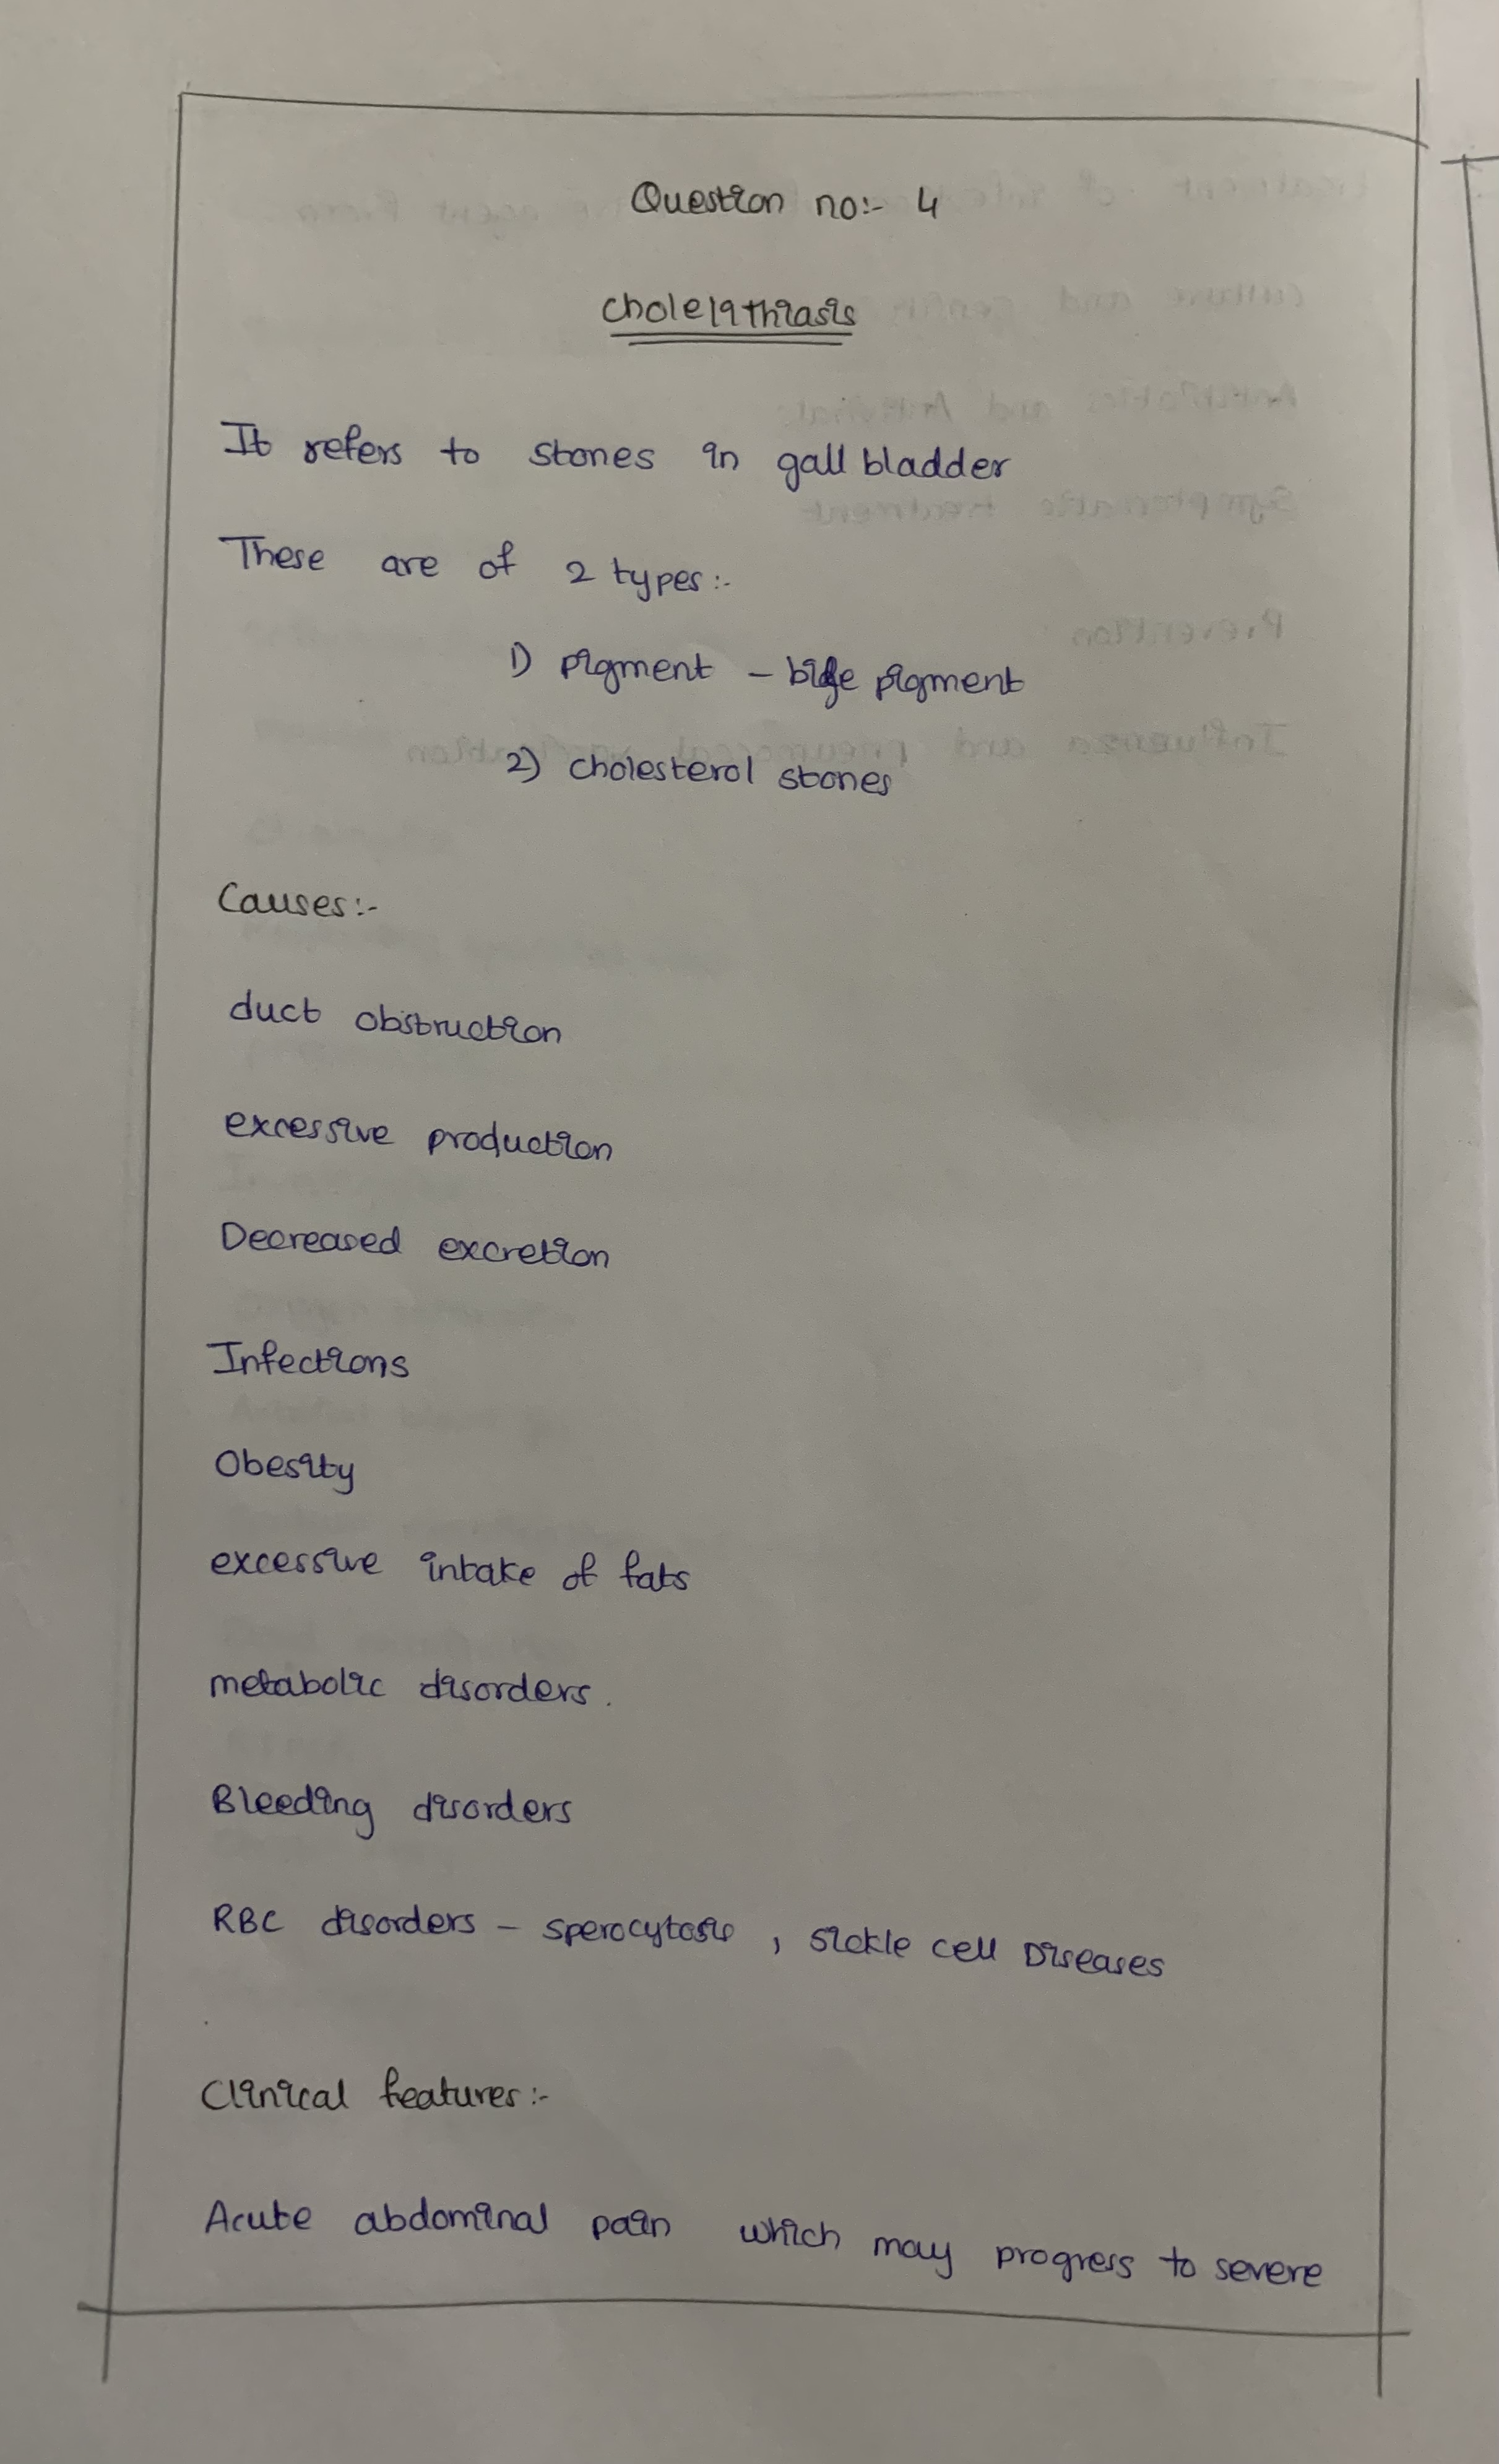 Question no:- 4
Cholelithiasis
It refers to stones in gall bladder
These are of 2 types:-
1) pigment - bile pigment
2) cholesterol stones
Causes:-
duct obstruction
excessive production
Decreased excretion
Infections
Obesity
excessive intake of fats
metabolic disorders.
Bleeding disorders
RBC disorders - sperocytosis, sickle cell Diseases
Clinical features:-
Acute abdominal pain which may progress to severe